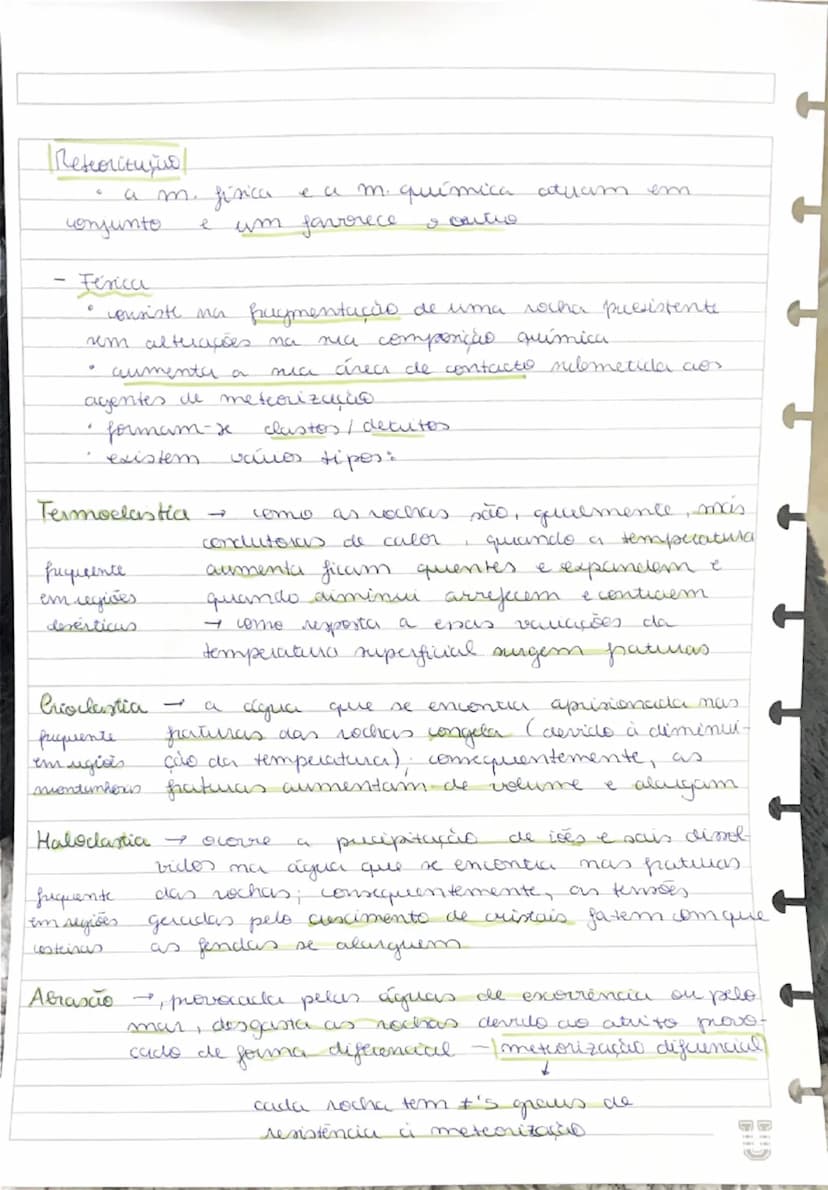 Meteorização
• a m. física e a m. química atuam em
conjunto e um favorece o outro
- Física
• consiste na fragmentação de uma rocha preexistente
sem alterações na sua composição química
• aumenta a sua área de contacto submetida aos
agentes de meteorização
• formam-se clastos / detritos
• existem vários tipos:
Termoclastia → como as rochas são, geralmente, más
condutoras de calor, quando a temperatura
frequente aumenta ficam quentes e expandem e
em regiões quando diminui arrefecem e contraem
desérticas → como resposta a essas variações da
temperatura superficial surgem fraturas
Crioclastia → a água que se encontra aprisionada nas
frequente fraturas das rochas congela (devido à diminui-
em regiões ção da temperatura); consequentemente, as
montanhosas fraturas aumentam de volume e alargam
Haloclastia → ocorre a precipitação de iões e sais dissol-
vidos na água que se encontra nas fraturas
frequente das rochas; consequentemente, as tensões
em regiões geradas pelo crescimento de cristais fazem com que
costeiras as fendas se alarguem
Abrasão →, provocada pelas águas de escorrência ou pelo
mar, desgasta as rochas devido ao atrito provo-
cado de forma diferencial - meteorização diferencial
↓
cada rocha tem ≠'s graus de
resistência à meteorização